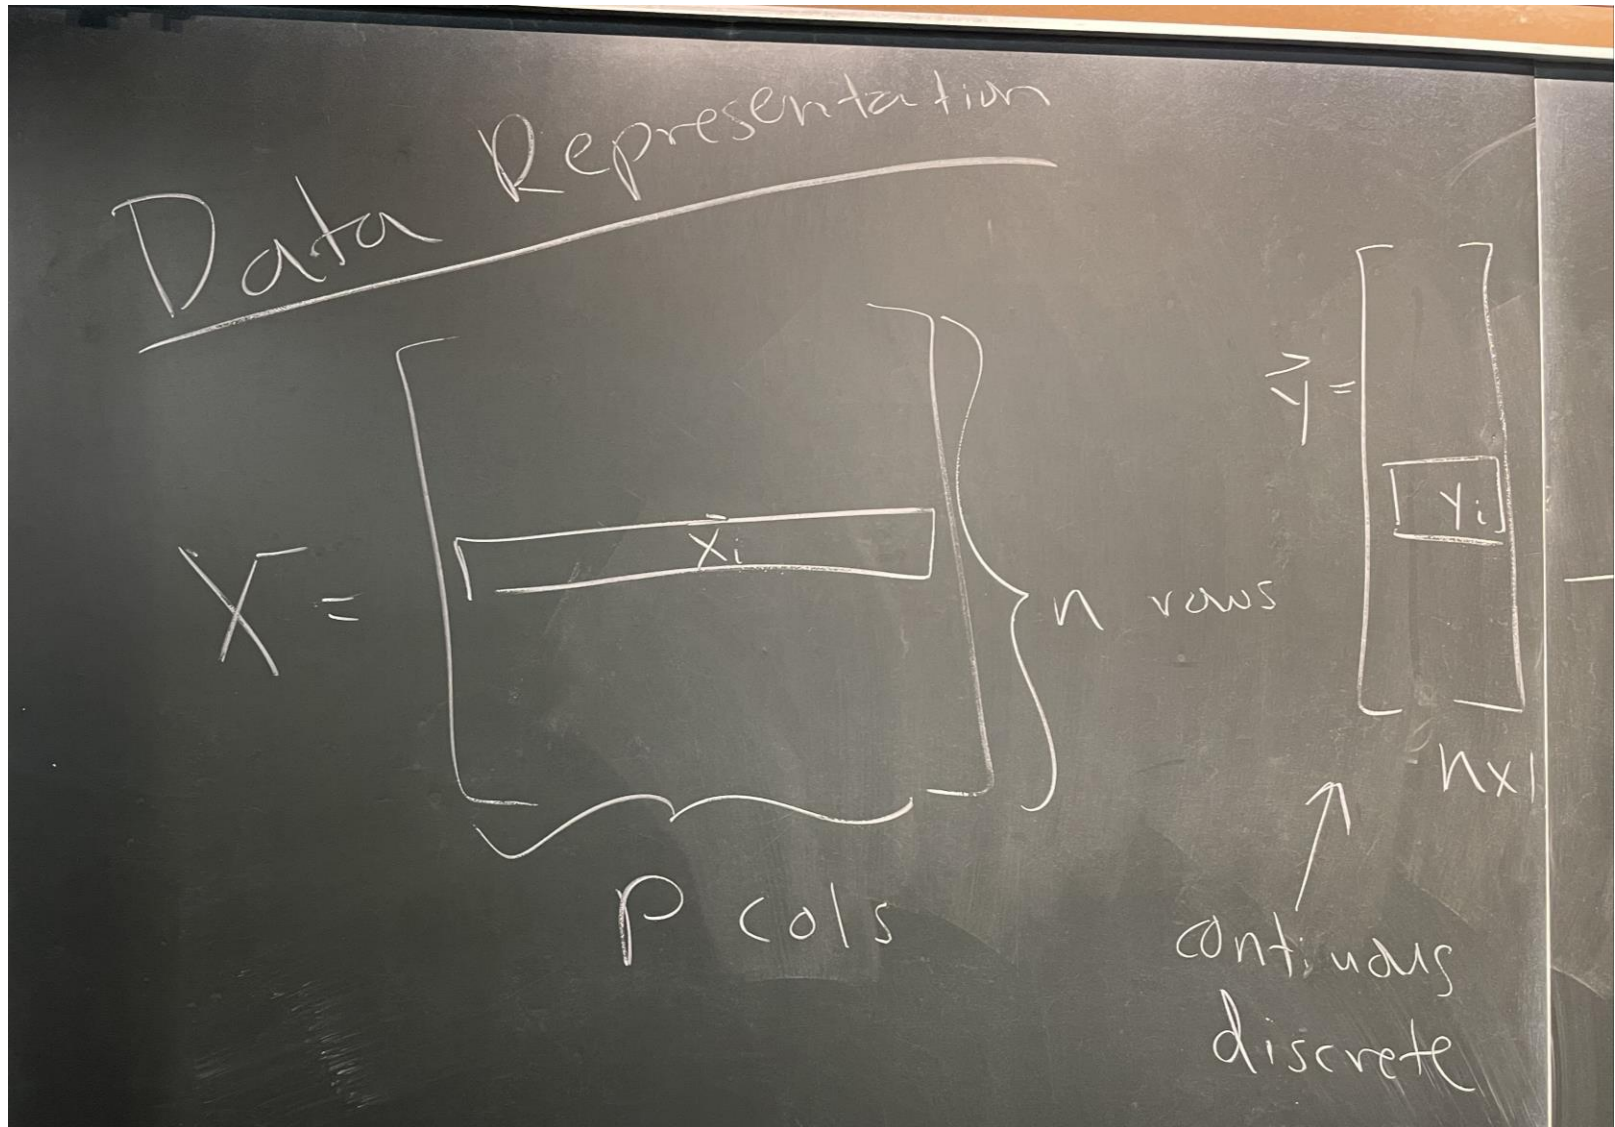 Data Representation
X = [ x⃗i ] n rows
p cols
y⃗ = [ yi ]
n×1
continuous
discrete